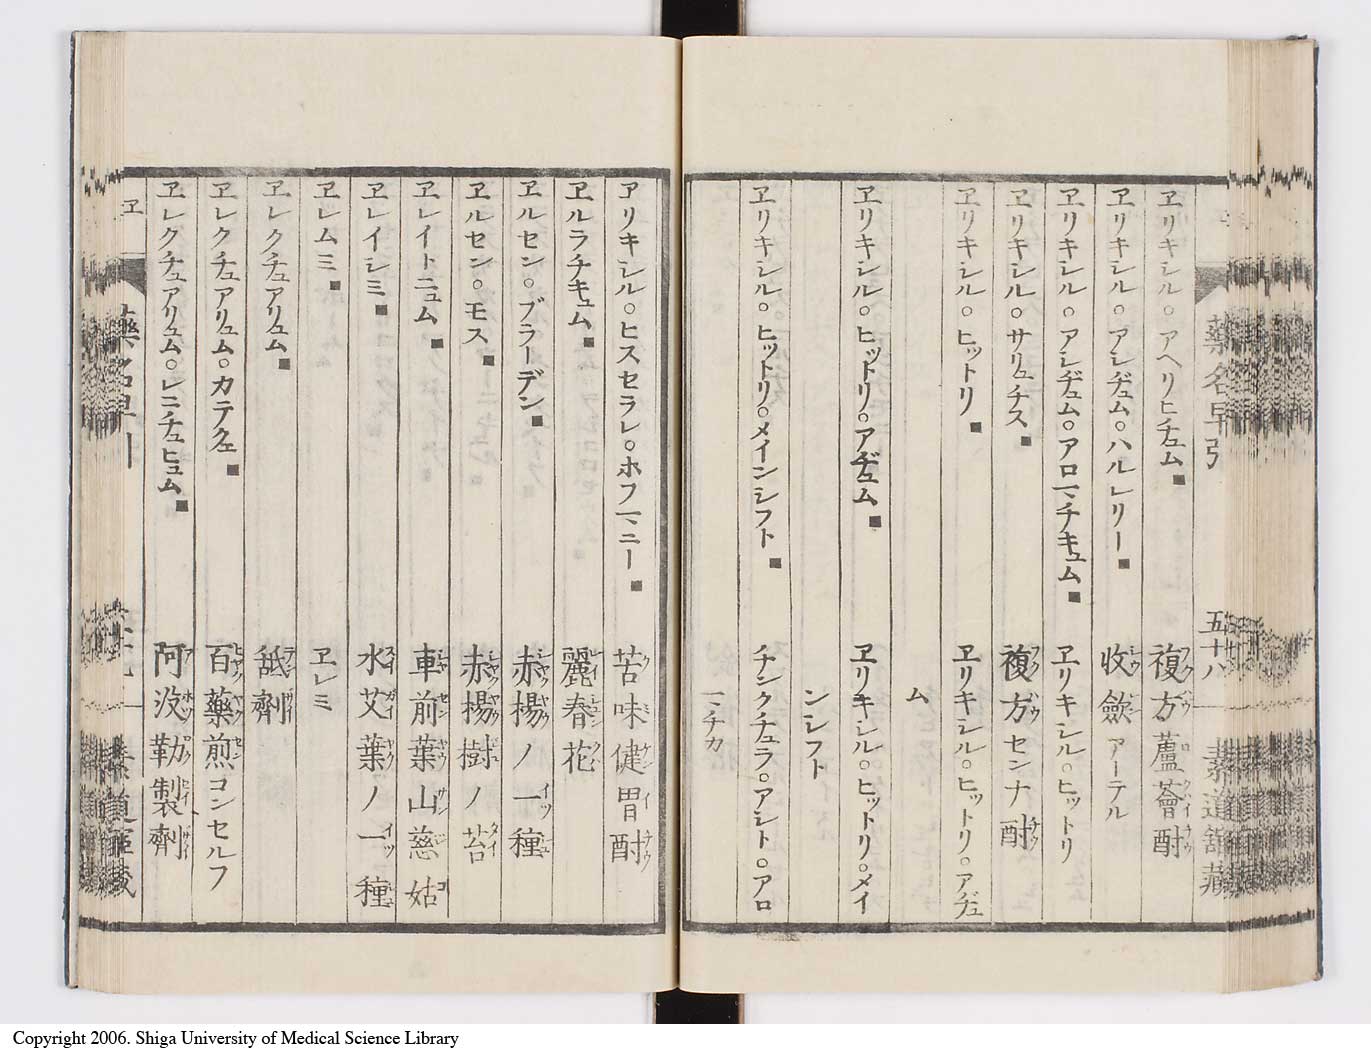 藥名早引
五十八
ヱリキシル○アヘリヒチュム■ 複方蘆薈酎
ヱリキシル○アシヂュム○ハルレリー■ 收歛アーテル
ヱリキシル○アシヂュム○アロマチキュム■ ヱリキシル○ヒットリ
ヱリキシル○サリュチス■ 複方センナ酎
ヱリキシル○ヒットリ■ ヱリキシル○ヒットリ○アヂュ
ム
ヱリキシル○ヒットリ○アヂュム■ ヱリキシル○ヒットリ○メイ
ンシフト
ヱリキシル○ヒットリ○メインシフト■ チンクチュラ○アシト○アロ
マチカ
ヱリキシル○ヒスセラレ○ホフマニー■ 苦味健胃酎
ヱルラチキュム■ 麗春花
ヱルセン○ブラーデン■ 赤楊ノ一種
ヱルセン○モス■ 赤楊樹ノ苔
ヱレイトニュム■ 車前葉山慈姑
ヱレイシミ■ 水艾葉ノ一種
ヱレムミ■ ヱレミ
ヱレクチュアリュム■ 舐劑
ヱレクチュアリュム○カテクヱ■ 百藥煎コンセルフ
ヱレクチュアリュム○レニチュヒュム■ 阿没勒製劑
ヱ
Copyright 2006. Shiga University of Medical Science Library